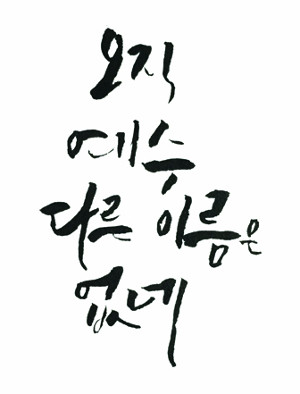 오직
예수
다른 이름은
없네